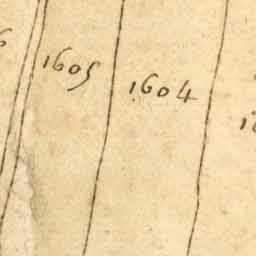 1605
1604